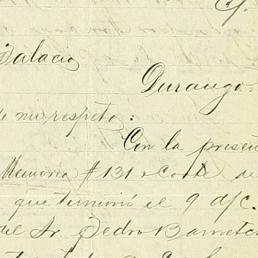 Palacio
Durango.
de mi respeto:
Con la presen
Memoria # 131 o Corte de
que terminó el 9 d/c.
del Sr. Pedro Barretc